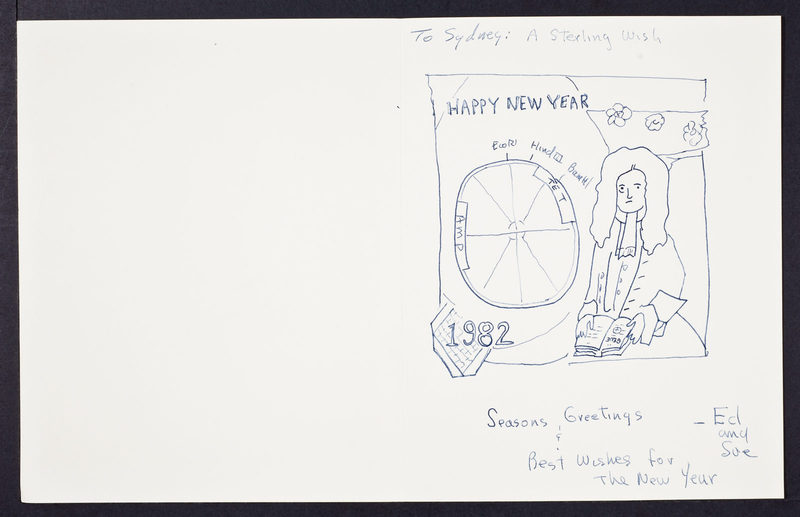 To Sydney: A Sterling Wish
HAPPY NEW YEAR
EcoRI HindIII BamHI
TET
AMP
1982
Seasons Greetings
&
Best Wishes for
The New Year
- Ed
and
Sue